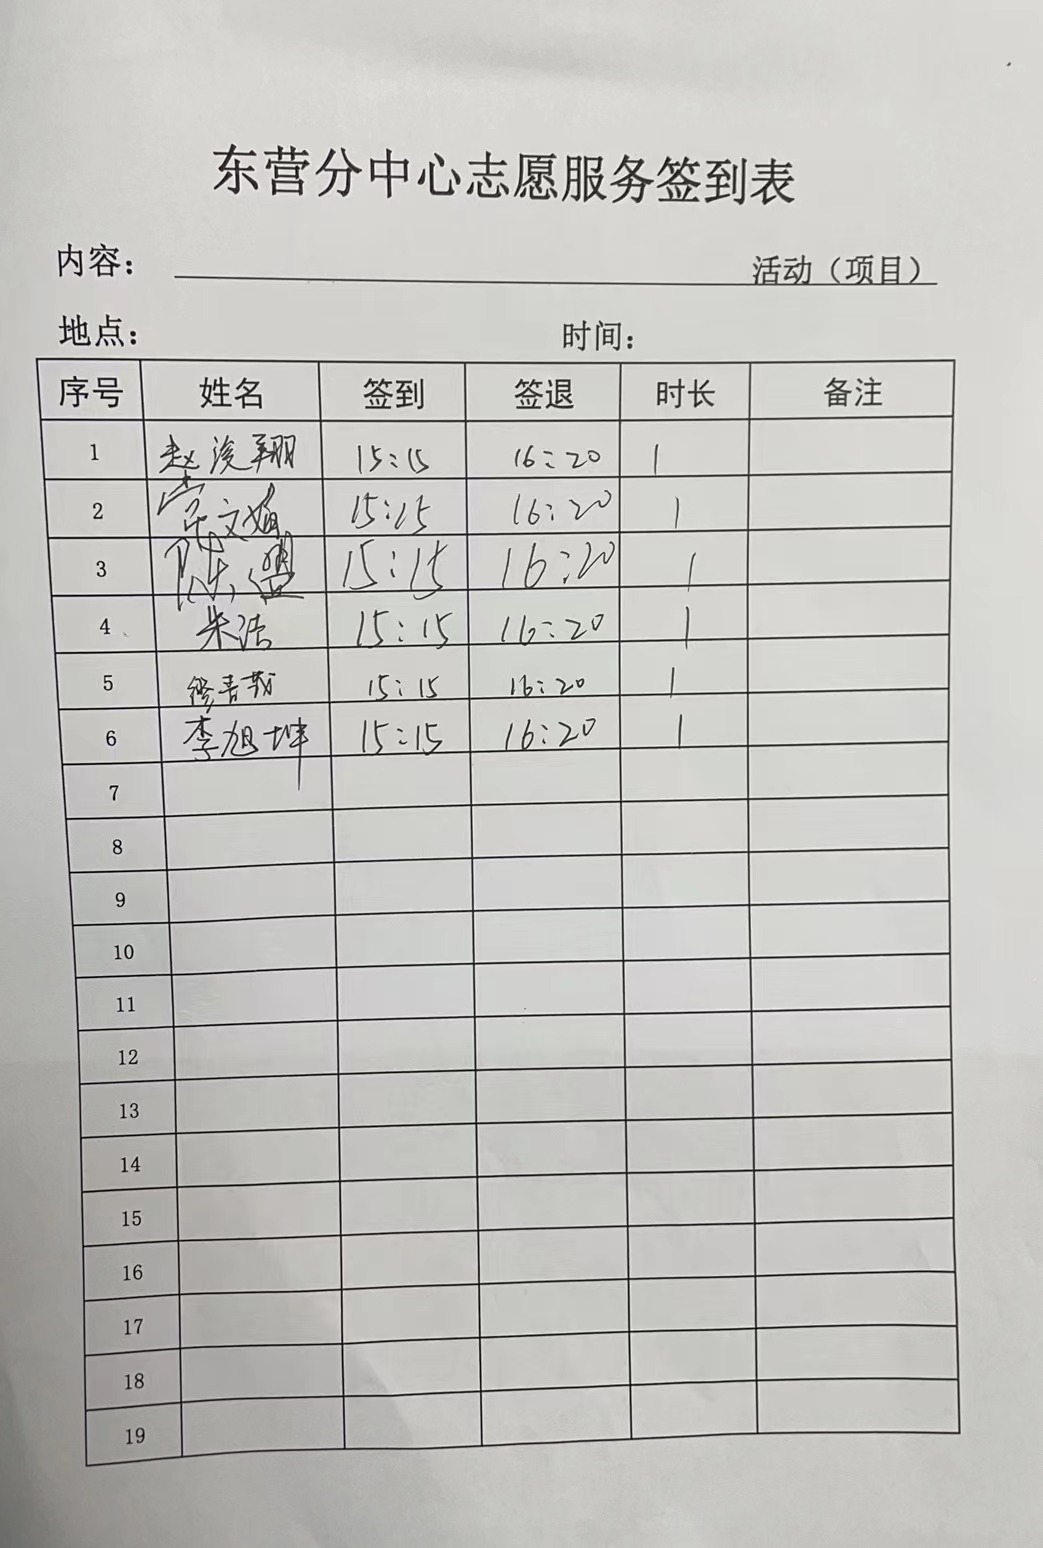 东营分中心志愿服务签到表
内容： 活动（项目）
地点： 时间：
序号 姓名 签到 签退 时长 备注
1 赵浚翔 15:15 16:20 1
2 15:15 16:20 1
3 陈 15:15 16:20 1
4 朱洁 15:15 16:20 1
5 修青 15:15 16:20 1
6 李旭坤 15:15 16:20 1
7
8
9
10
11
12
13
14
15
16
17
18
19